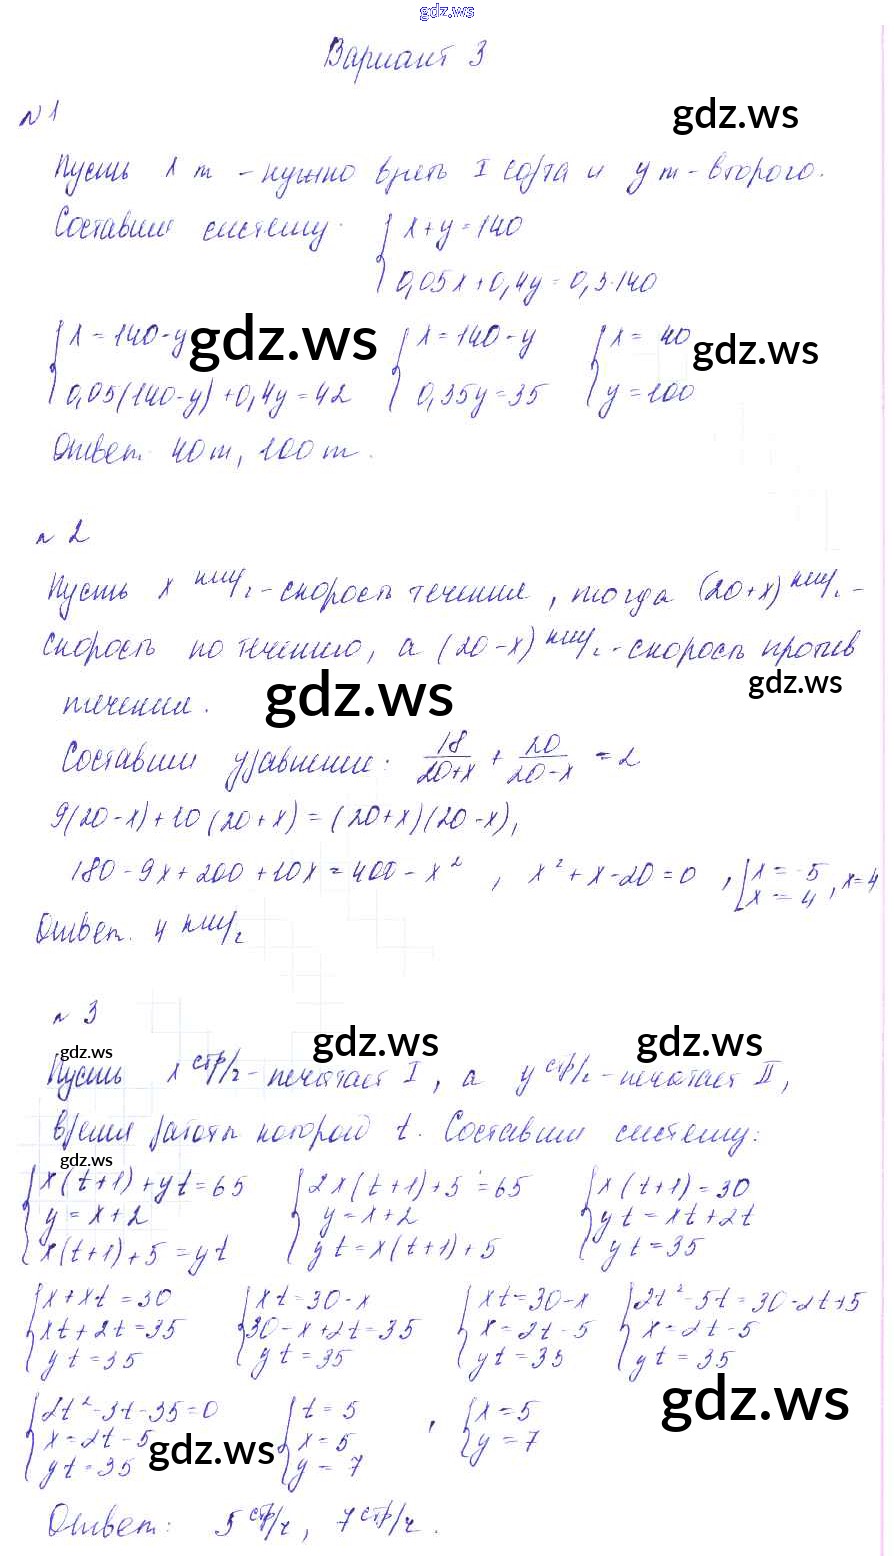 gdz.ws
Вариант 3
№1 gdz.ws
Пусть x т - нужно взять I сорта и y т - второго.
Составим систему: { x+y=140
0,05x+0,4y=0,3·140
{ x=140-y gdz.ws { x=140-y { x=40 gdz.ws
0,05(140-y)+0,4y=42 0,35y=35 y=100
Ответ: 40 т, 100 т.
№2
Пусть x км/ч - скорость течения, тогда (20+x) км/ч -
скорость по течению, а (20-x) км/ч - скорость против
gdz.ws gdz.ws
течения.
Составим уравнение: 18/(20+x) + 20/(20-x) = 2
9(20-x)+10(20+x)=(20+x)(20-x),
180-9x+200+10x=400-x², x²+x-20=0, [ x=-5
x=4, x=4
Ответ: 4 км/ч
№3
gdz.ws gdz.ws gdz.ws
Пусть x стр/ч - печатает I, а y стр/ч - печатает II,
время работы которой t. Составим систему:
gdz.ws
{ x(t+1)+yt=65 { 2x(t+1)+5=65 { x(t+1)=30
y=x+2 y=x+2 yt=xt+2t
x(t+1)+5=yt yt=x(t+1)+5 yt=35
{ x+xt=30 { xt=30-x { xt=30-x { 2t²-5t=30-2t+5
xt+2t=35 30-x+2t=35 x=2t-5 x=2t-5
yt=35 yt=35 yt=35 yt=35
gdz.ws
{ 2t²-3t-35=0 { t=5 , { x=5
x=2t-5 x=5 y=7
yt=35 y=7
gdz.ws
Ответ: 5 стр/ч, 7 стр/ч.